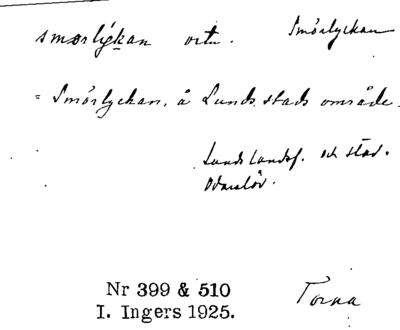 smørlýkan ortn. Smörlyckan
= Smörlyckan, å Lunds stads område.
Lunds landsf. och stad.
Odarslöv.
Nr 399 & 510
I. Ingers 1925.
Torna